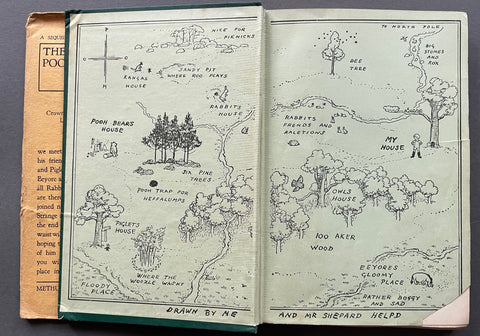 A SEQUE
THE
POO
Crown
we meet
his friend
and Piglet
Eeyore a
all Rabb
are there
joined no
Strange
the end
waist wi
hoping
you wi
place in
METHU
NICE FOR
PIKNICKS
KANGAS
HOUSE
SANDY PIT
WHERE ROO PLAYS
RABBITS
HOUSE
POOH BEARS
HOUSE
SIX PINE
TREES
POOH TRAP FOR
HEFFALUMPS
PIGLETS
HOUSE
WHERE THE
WOOZLE WASNT
FLOODY
PLACE
DRAWN BY ME
TO NORTH POLE
BIG
STONES
AND
ROX
BEE
TREE
RABBITS
FRENDS AND
RALETIONS
MY
HOUSE
OWLS
HOUSE
100 AKER
WOOD
EEYORES
GLOOMY
PLACE
RATHER BOGGY
AND SAD
AND MR SHEPARD HELPD